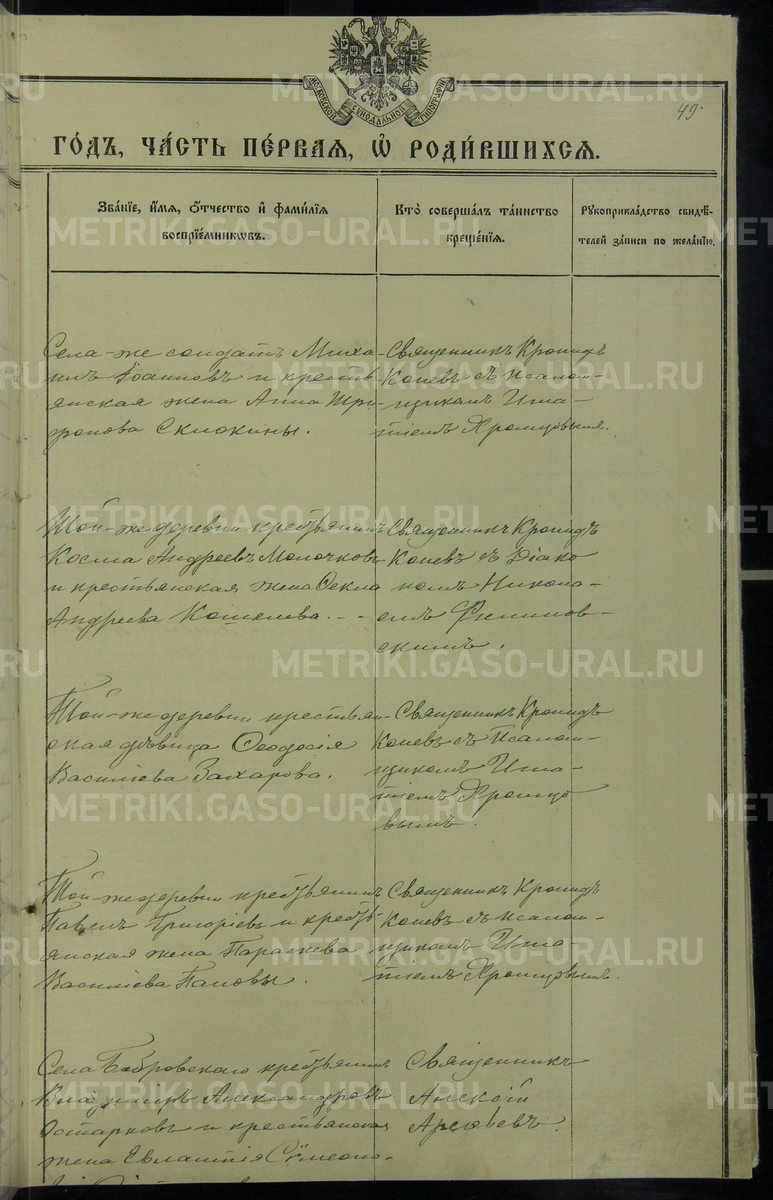 МОСКОВСКОЙ СѴНОДАЛЬНОЙ ТИПОГРАФІИ
49.
ГО́ДЪ, ЧА́СТЬ ПЕ́РВАЯ, Ѡ҆ РОДИ́ВШИХСЯ.
Зва́нїе, и҆́мя, ѻ҆́тчество и҆ фами́лїя
воспрїе́мникѡвъ.
Кто̀ соверша́лъ та́инство
креще́нїя.
Рꙋкоприкла́дство свидѣ́-
телей за́писи по жела́нїю.
Села-же солдатъ Миха-
илъ Іоанновъ и кресть
янская жена Анна Три-
фонова Скикины.
Священникъ Кронидъ
Коневъ съ псалом-
щикомъ Игна-
тіемъ
Той-же деревни крестьянинъ
Косма Андреевъ Молочковъ
и крестьянская жена Ѳекла
Андреева Кошелева.
Священникъ Кронидъ
Коневъ съ Діако
номъ Никола-
емъ Филинов-
скимъ.
Той-же деревни крестьян-
ская дѣвица Ѳеодосія
Василіева Захарова.
Священникъ Кронидъ
Коневъ съ псалом-
щикомъ Игна-
тіемъ
вымъ.
Той-же деревни крестьянинъ
Павелъ Григоріевъ и кресть-
янская жена Параскева
Василіева Пановы.
Священникъ Кронидъ
Коневъ съ псалом-
щикомъ Игна-
тіемъ
Села Бобровскаго крестьянинъ
Владиміръ Александровъ
и крестьянская
жена Евлампія Сѵмеоно-
Священникъ
METRIKI.GASO-URAL.RU